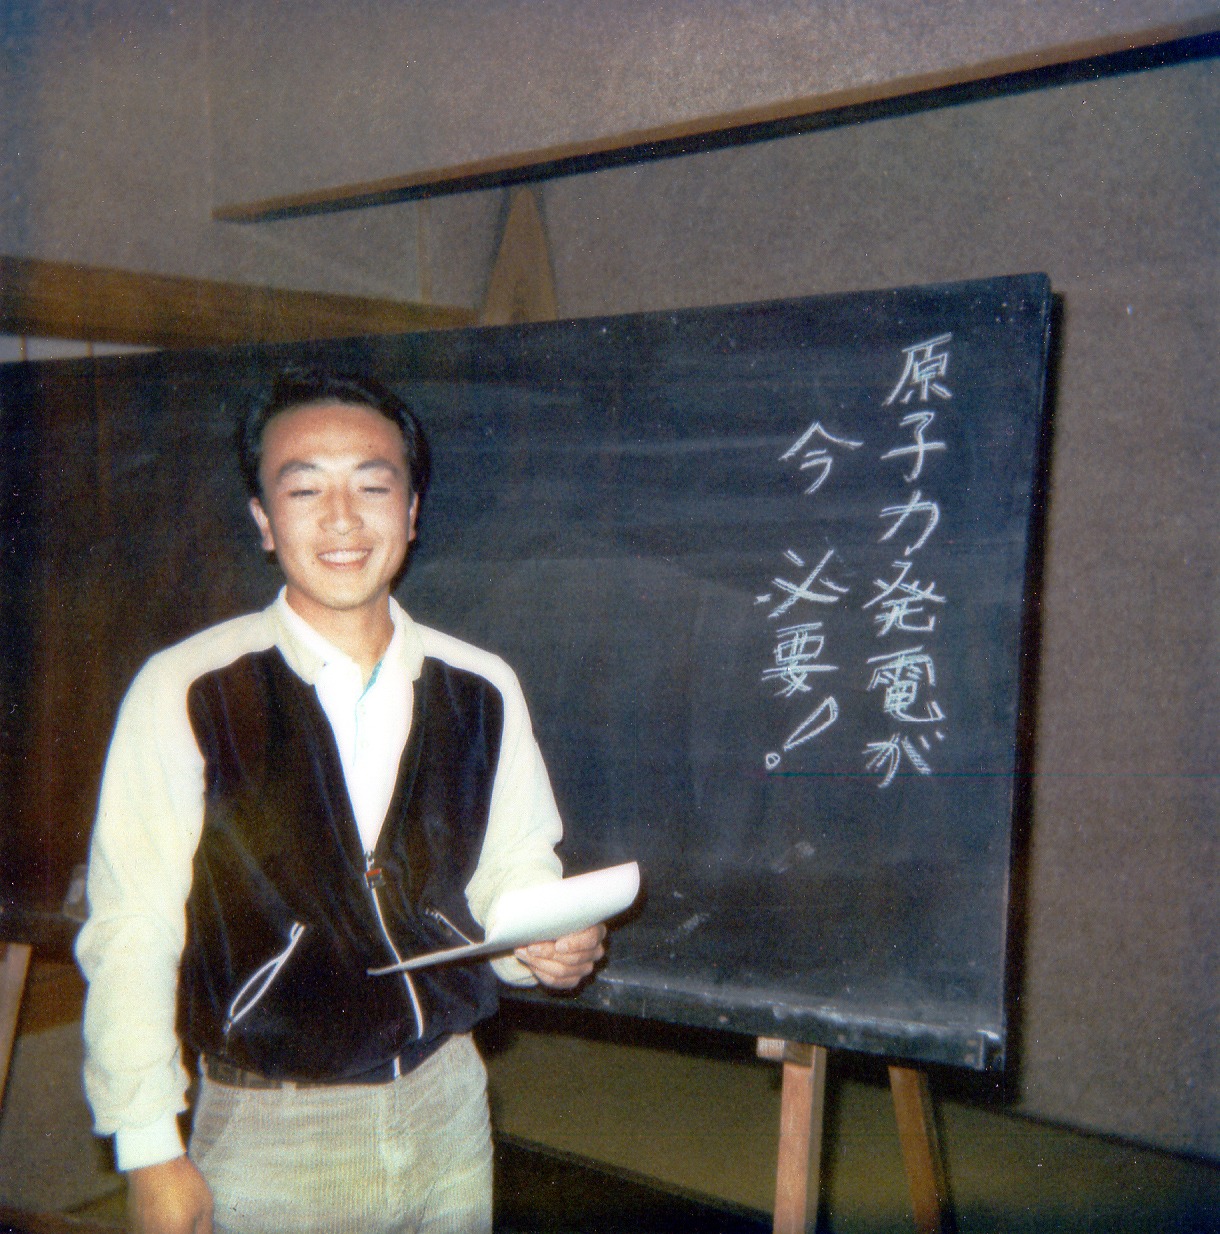 原子力発電が
今 必要!